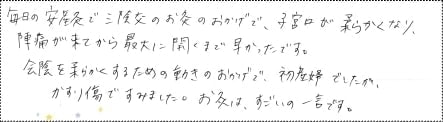 毎日の安産灸で三陰交のお灸のおかげで、子宮口が柔らかくなり、
陣痛が来てから最大に開くまで早かったです。
会陰を柔らかくするための動きのおかげで、初産婦でしたが、
かすり傷ですみました。お灸は、すごいの一言です。